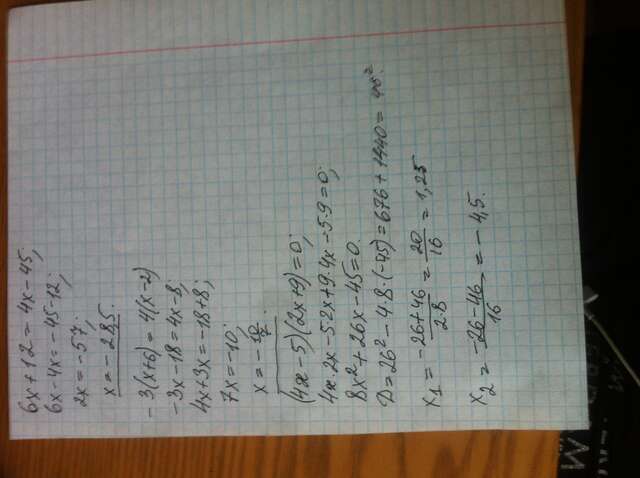 6x+12=4x-45;
6x-4x=-45-12;
2x=-57;
x=-28,5.
-3(x+6)=4(x-2)
-3x-18=4x-8;
4x+3x=-18+8;
7x=-10;
x=-10/7.
(4x-5)(2x+9)=0;
4x·2x-5·2x+9·4x-5·9=0;
8x²+26x-45=0.
D=26²-4·8·(-45)=676+1440=46².
x₁=(-26+46)/(2·8)=20/16=1,25
x₂=(-26-46)/16=-4,5.